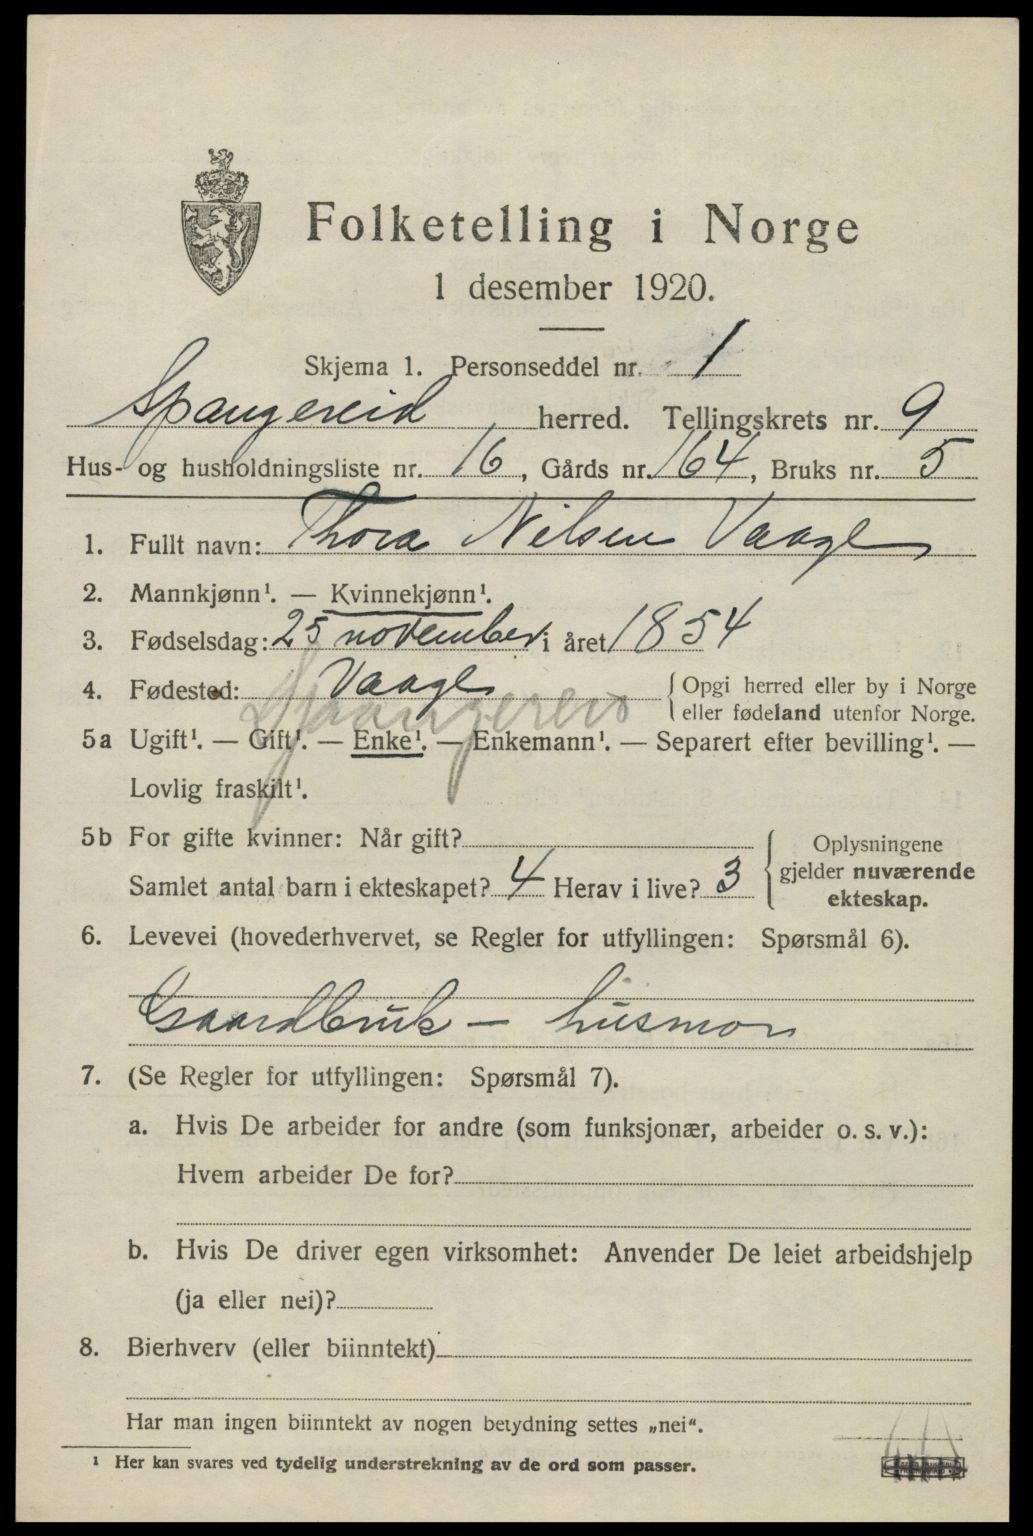 Folketelling i Norge
1 desember 1920.
Skjema 1. Personseddel nr. 1
Spangereid herred. Tellingskrets nr. 9
Hus- og husholdningsliste nr. 16, Gårds nr. 164, Bruks nr. 5
1. Fullt navn: Thora Nilsen Vaage
2. Mannkjønn¹. — Kvinnekjønn¹.
3. Fødselsdag: 25 november i året 1854
4. Fødested: Vaage { Opgi herred eller by i Norge
Spangereid eller fødeland utenfor Norge.
5a Ugift¹. — Gift¹. — Enke¹. — Enkemann¹. — Separert efter bevilling¹. —
Lovlig fraskilt¹.
5b For gifte kvinner: Når gift? { Oplysningene
Samlet antal barn i ekteskapet? 4 Herav i live? 3 gjelder nuværende
ekteskap.
6. Levevei (hovederhvervet, se Regler for utfyllingen: Spørsmål 6).
Gaardbruk — husmor
7. (Se Regler for utfyllingen: Spørsmål 7).
a. Hvis De arbeider for andre (som funksjonær, arbeider o. s. v.):
Hvem arbeider De for?
b. Hvis De driver egen virksomhet: Anvender De leiet arbeidshjelp
(ja eller nei)?
8. Bierhverv (eller biinntekt)
Har man ingen biinntekt av nogen betydning settes „nei“.
¹ Her kan svares ved tydelig understrekning av de ord som passer.